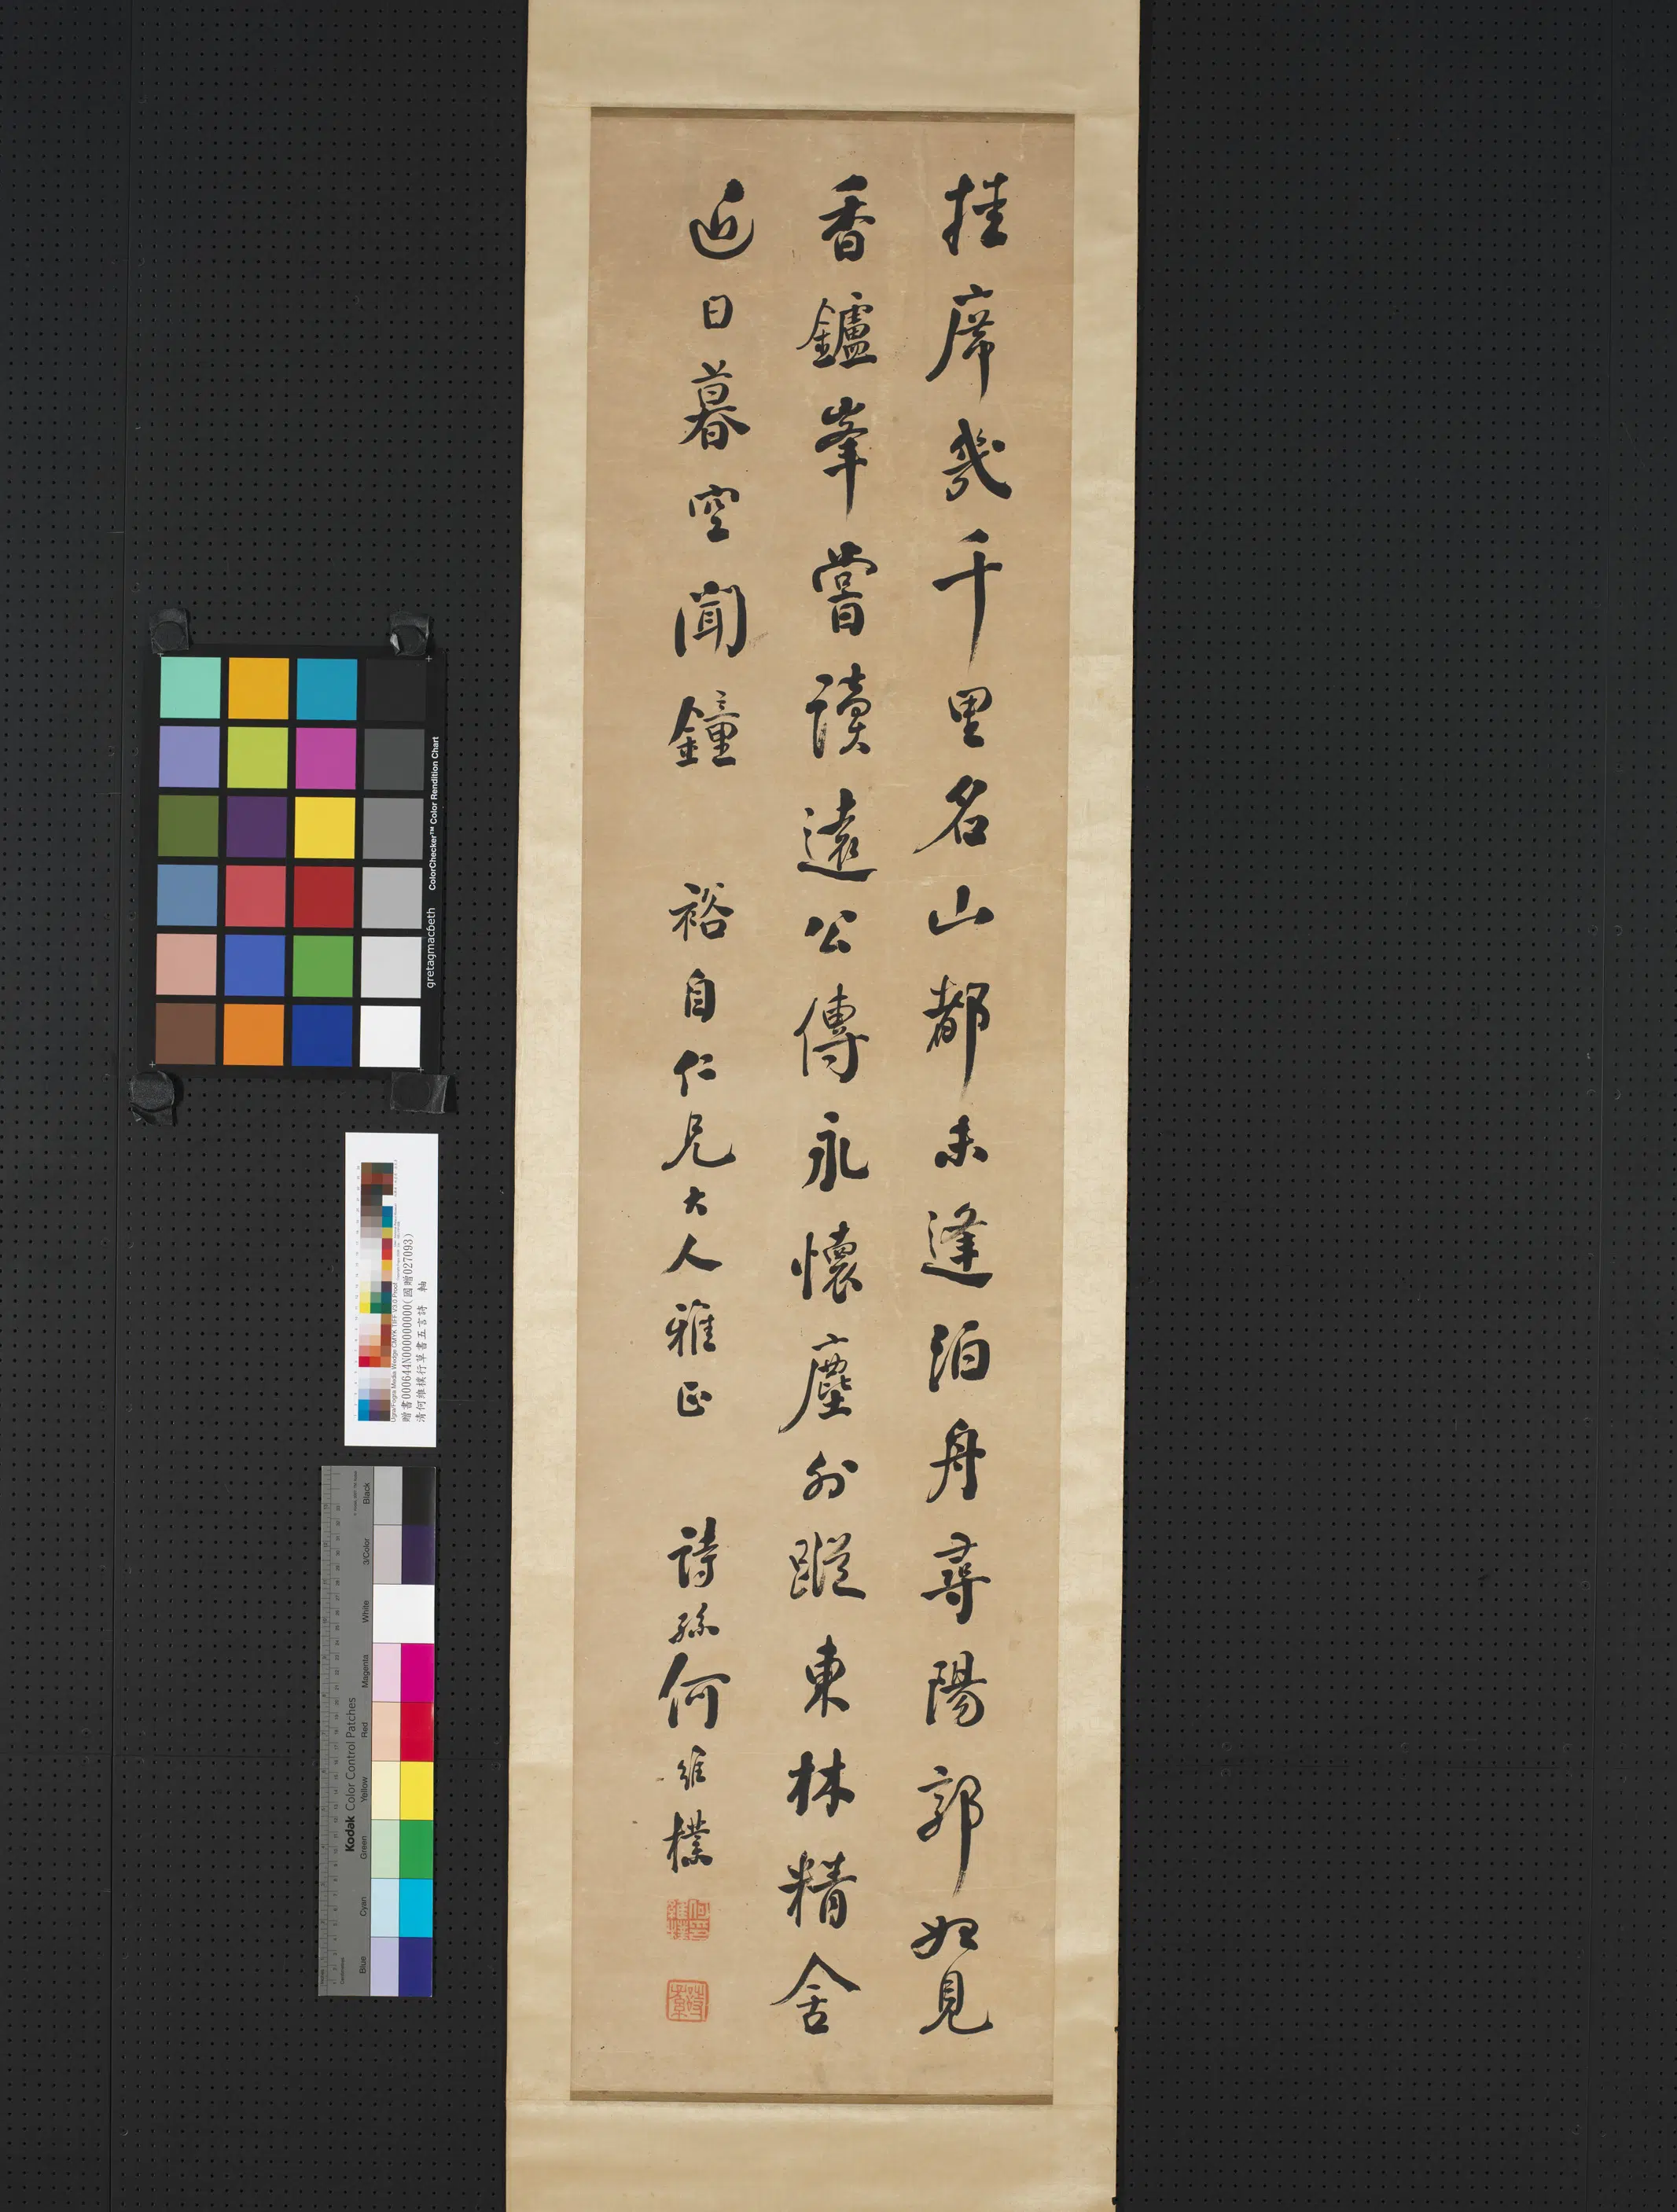 挂席幾千里名山都未逢泊舟尋陽郭始見
香鑪峯嘗讀遠公傳永懷塵外蹤東林精舍
近日暮空聞鐘 裕自仁兄大人雅正 詩孫何維樸
何維樸印
詩孫
gretagmacbeth ColorChecker™ Color Rendition Chart
Ugra/Fogra Media Wedge CMYK TIFF V3.0 Proof
贈書000644N000000000(國贈027093)
清何維樸行草書五言詩 軸
Kodak Color Control Patches
Blue Cyan Green Yellow Red Magenta White 3/Color Black